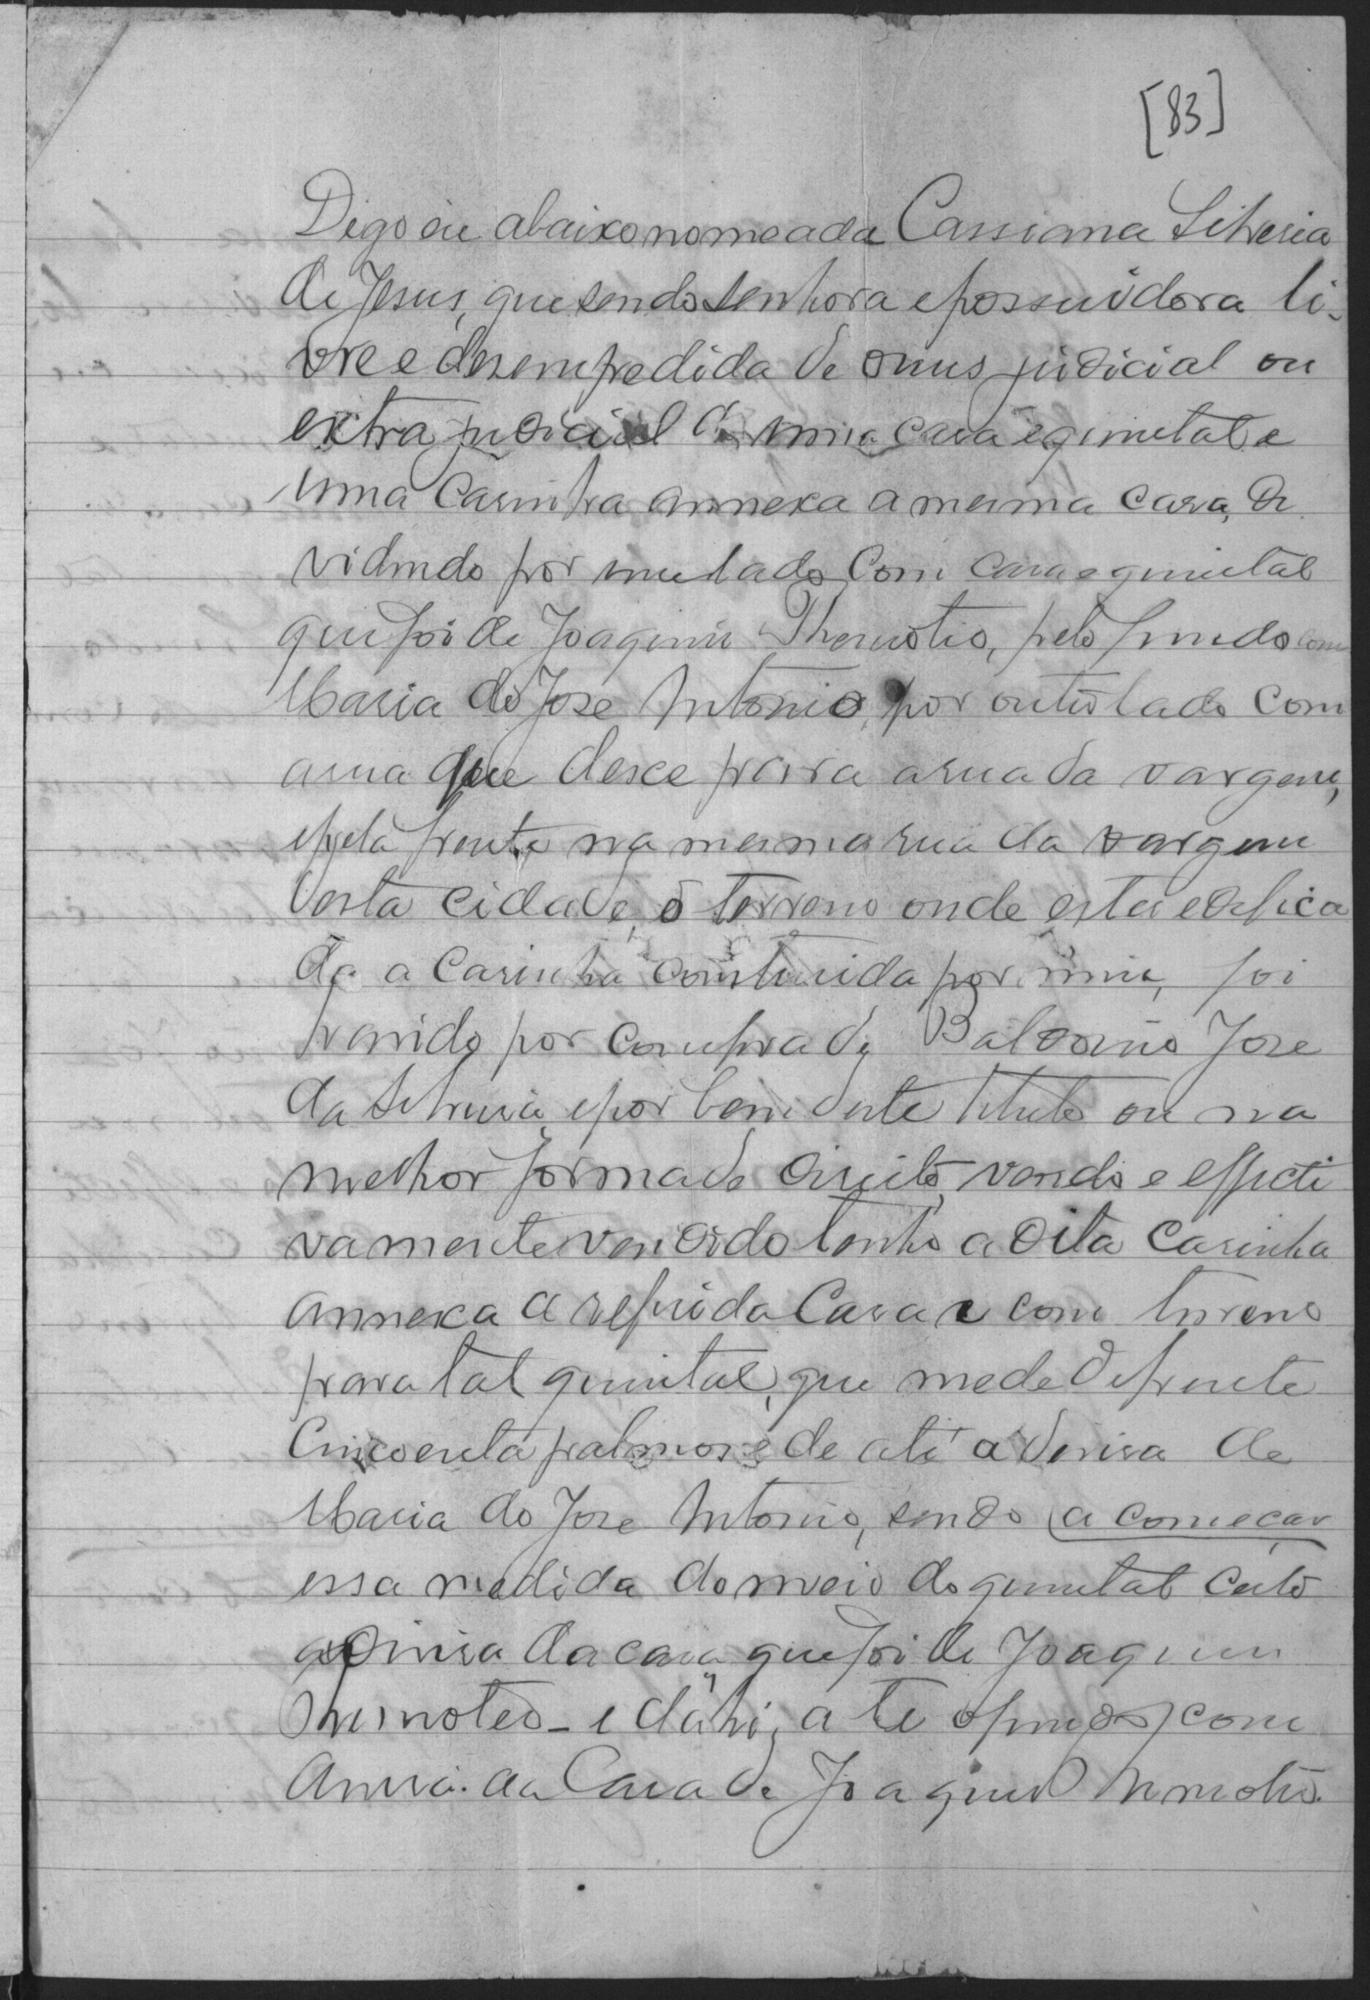 [83]
Digo eu abaixo nomeada Cassiana Silveria
de Jesus, que sendo senhora e possuidora li-
vre e desempedida de onus judicial ou
extra judicial de uma casa e quintal e
uma casinha annexa a mesma casa, de
vidindo por um lado com casa e quintal
que foi de Joaquim Themotio, pelo fundo com
Maria do Jose Antonio, por outro lado com
a rua que desce para a rua da vargem,
e pela frente na mesma rua da vargem
desta cidade, o terreno onde esta edefica
da a casinha construida por mim, foi
havido por compra de Baldoino Jose
da Silveira, e por bem deste titulo ou na
melhor forma de direito, vendo e effecti
vamente vendido tenho a dita casinha
annexa a referida casa e com terreno
para tal quintal, que mede de frente
cincoenta palmos e de até a devisa de
Maria do Jose Antonio, sendo a começar
essa medida do meio do quintal
a devisa da casa que foi de Joaquim
Themoteo - e dahi, a te o fundo com
devisa da Casa de Joaquim Themotio.